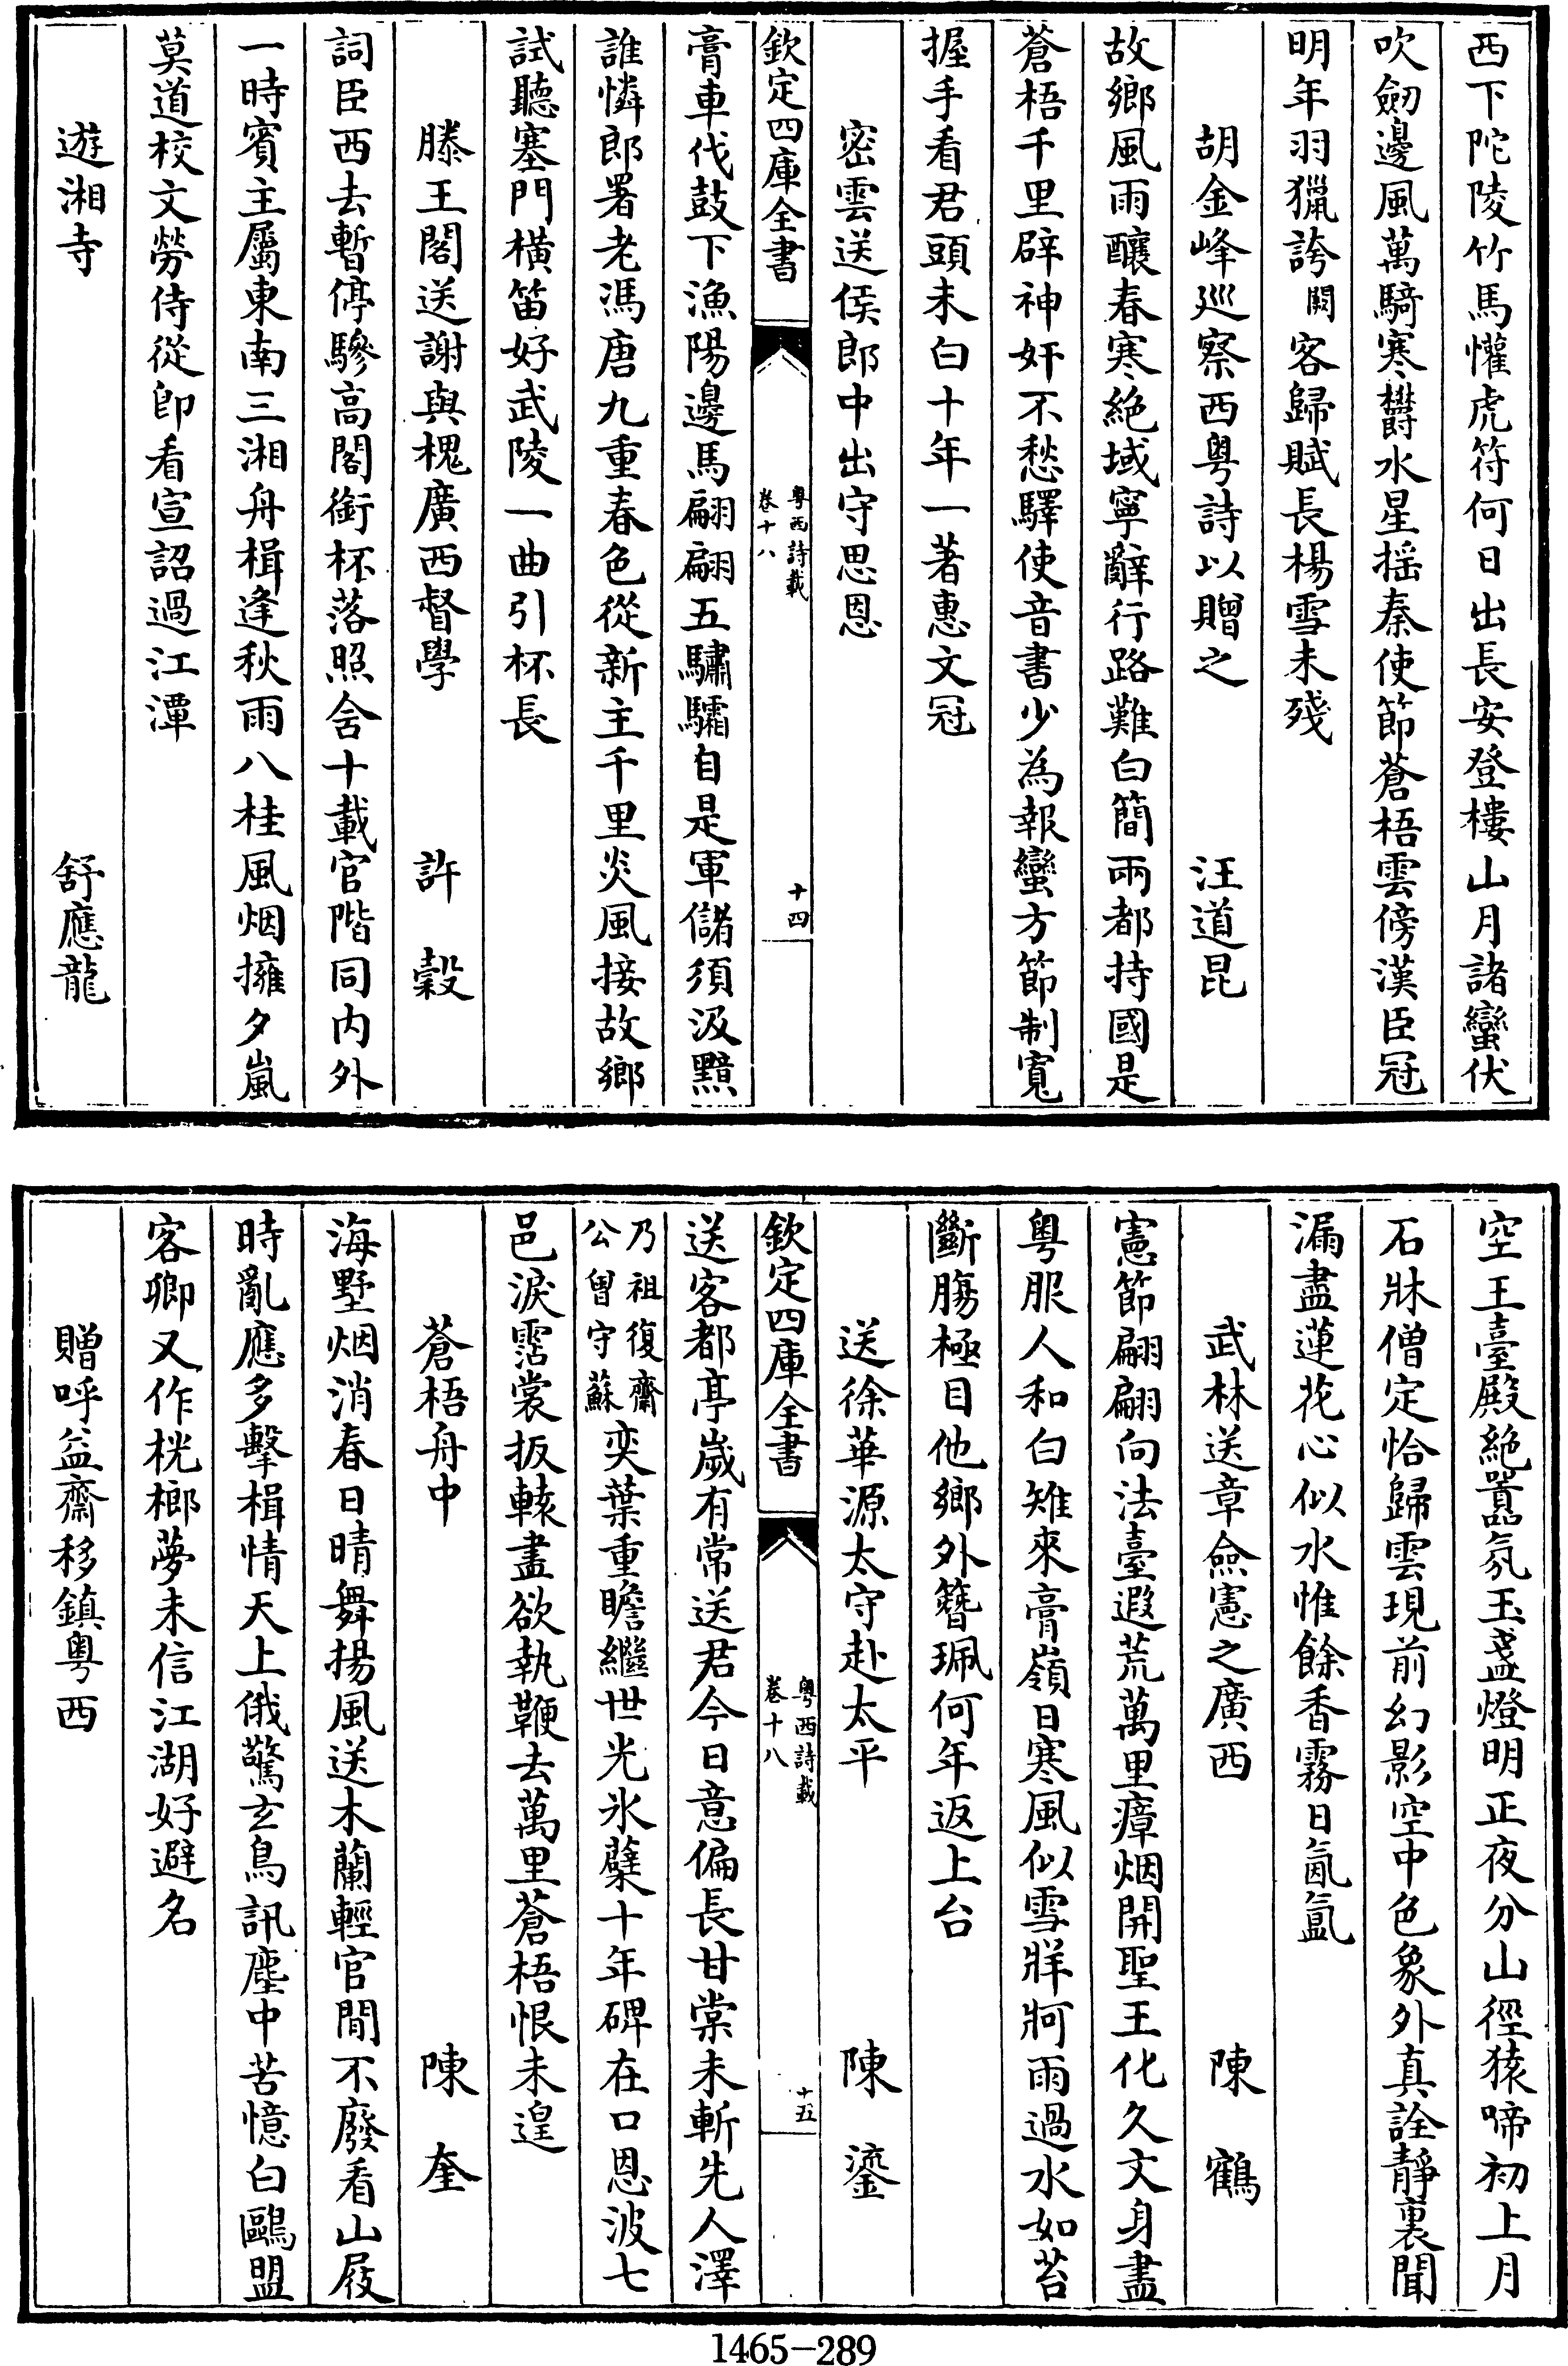 西下陀陵竹馬懽虎符何日出長安登樓山月諸蠻伏
吹劒邊風萬騎寒欝水星搖秦使節蒼梧雲傍漢臣冠
明年羽獵誇闕客歸賦長楊雪未殘
胡金峰巡察西粵詩以贈之 汪道昆
故鄉風雨釀春寒絶域寧辭行路難白簡兩都持國是
蒼梧千里辟神奸不愁驛使音書少為報蠻方節制寬
握手看君頭未白十年一著惠文冠
密雲送侯郎中出守思恩
欽定四庫全書
粵西詩載
卷十八
十四
膏車伐鼓下漁陽邊馬翩翩五驌驦自是軍儲須汲黯
誰憐郎署老馮唐九重春色從新主千里炎風接故鄉
試聽塞門橫笛好武陵一曲引杯長
滕王閣送謝與槐廣西督學 許穀
詞臣西去暫停驂高閣銜杯落照含十載官階同內外
一時賓主屬東南三湘舟楫逢秋雨八桂風烟擁夕嵐
莫道校文勞侍從卽看宣詔過江潭
遊湘寺 舒應龍
空王臺殿絶囂氛玉盞燈明正夜分山徑猿啼初上月
石牀僧定恰歸雲現前幻影空中色象外真詮靜裏聞
漏盡蓮花心似水惟餘香霧日氤氳
武林送章僉憲之廣西 陳鶴
憲節翩翩向法臺遐荒萬里瘴烟開聖王化久文身盡
粵服人和白雉來膏嶺日寒風似雪牂牁雨過水如苔
斷腸極目他鄉外簪珮何年返上台
送徐華源太守赴太平 陳鎏
欽定四庫全書
粵西詩載
卷十八
十五
送客都亭嵗有常送君今日意偏長甘棠未斬先人澤
乃祖復齋
公曽守蘇
奕葉重瞻繼世光氷蘗十年碑在口恩波七
邑淚霑裳扳轅盡欲執鞭去萬里蒼梧恨未遑
蒼梧舟中 陳奎
海墅烟消春日晴舞揚風送木蘭輕官閒不廢看山屐
時亂應多擊楫情天上俄驚玄鳥訊塵中苦憶白鷗盟
客卿又作桄榔夢未信江湖好避名
贈呼益齋移鎮粵西
1465-289